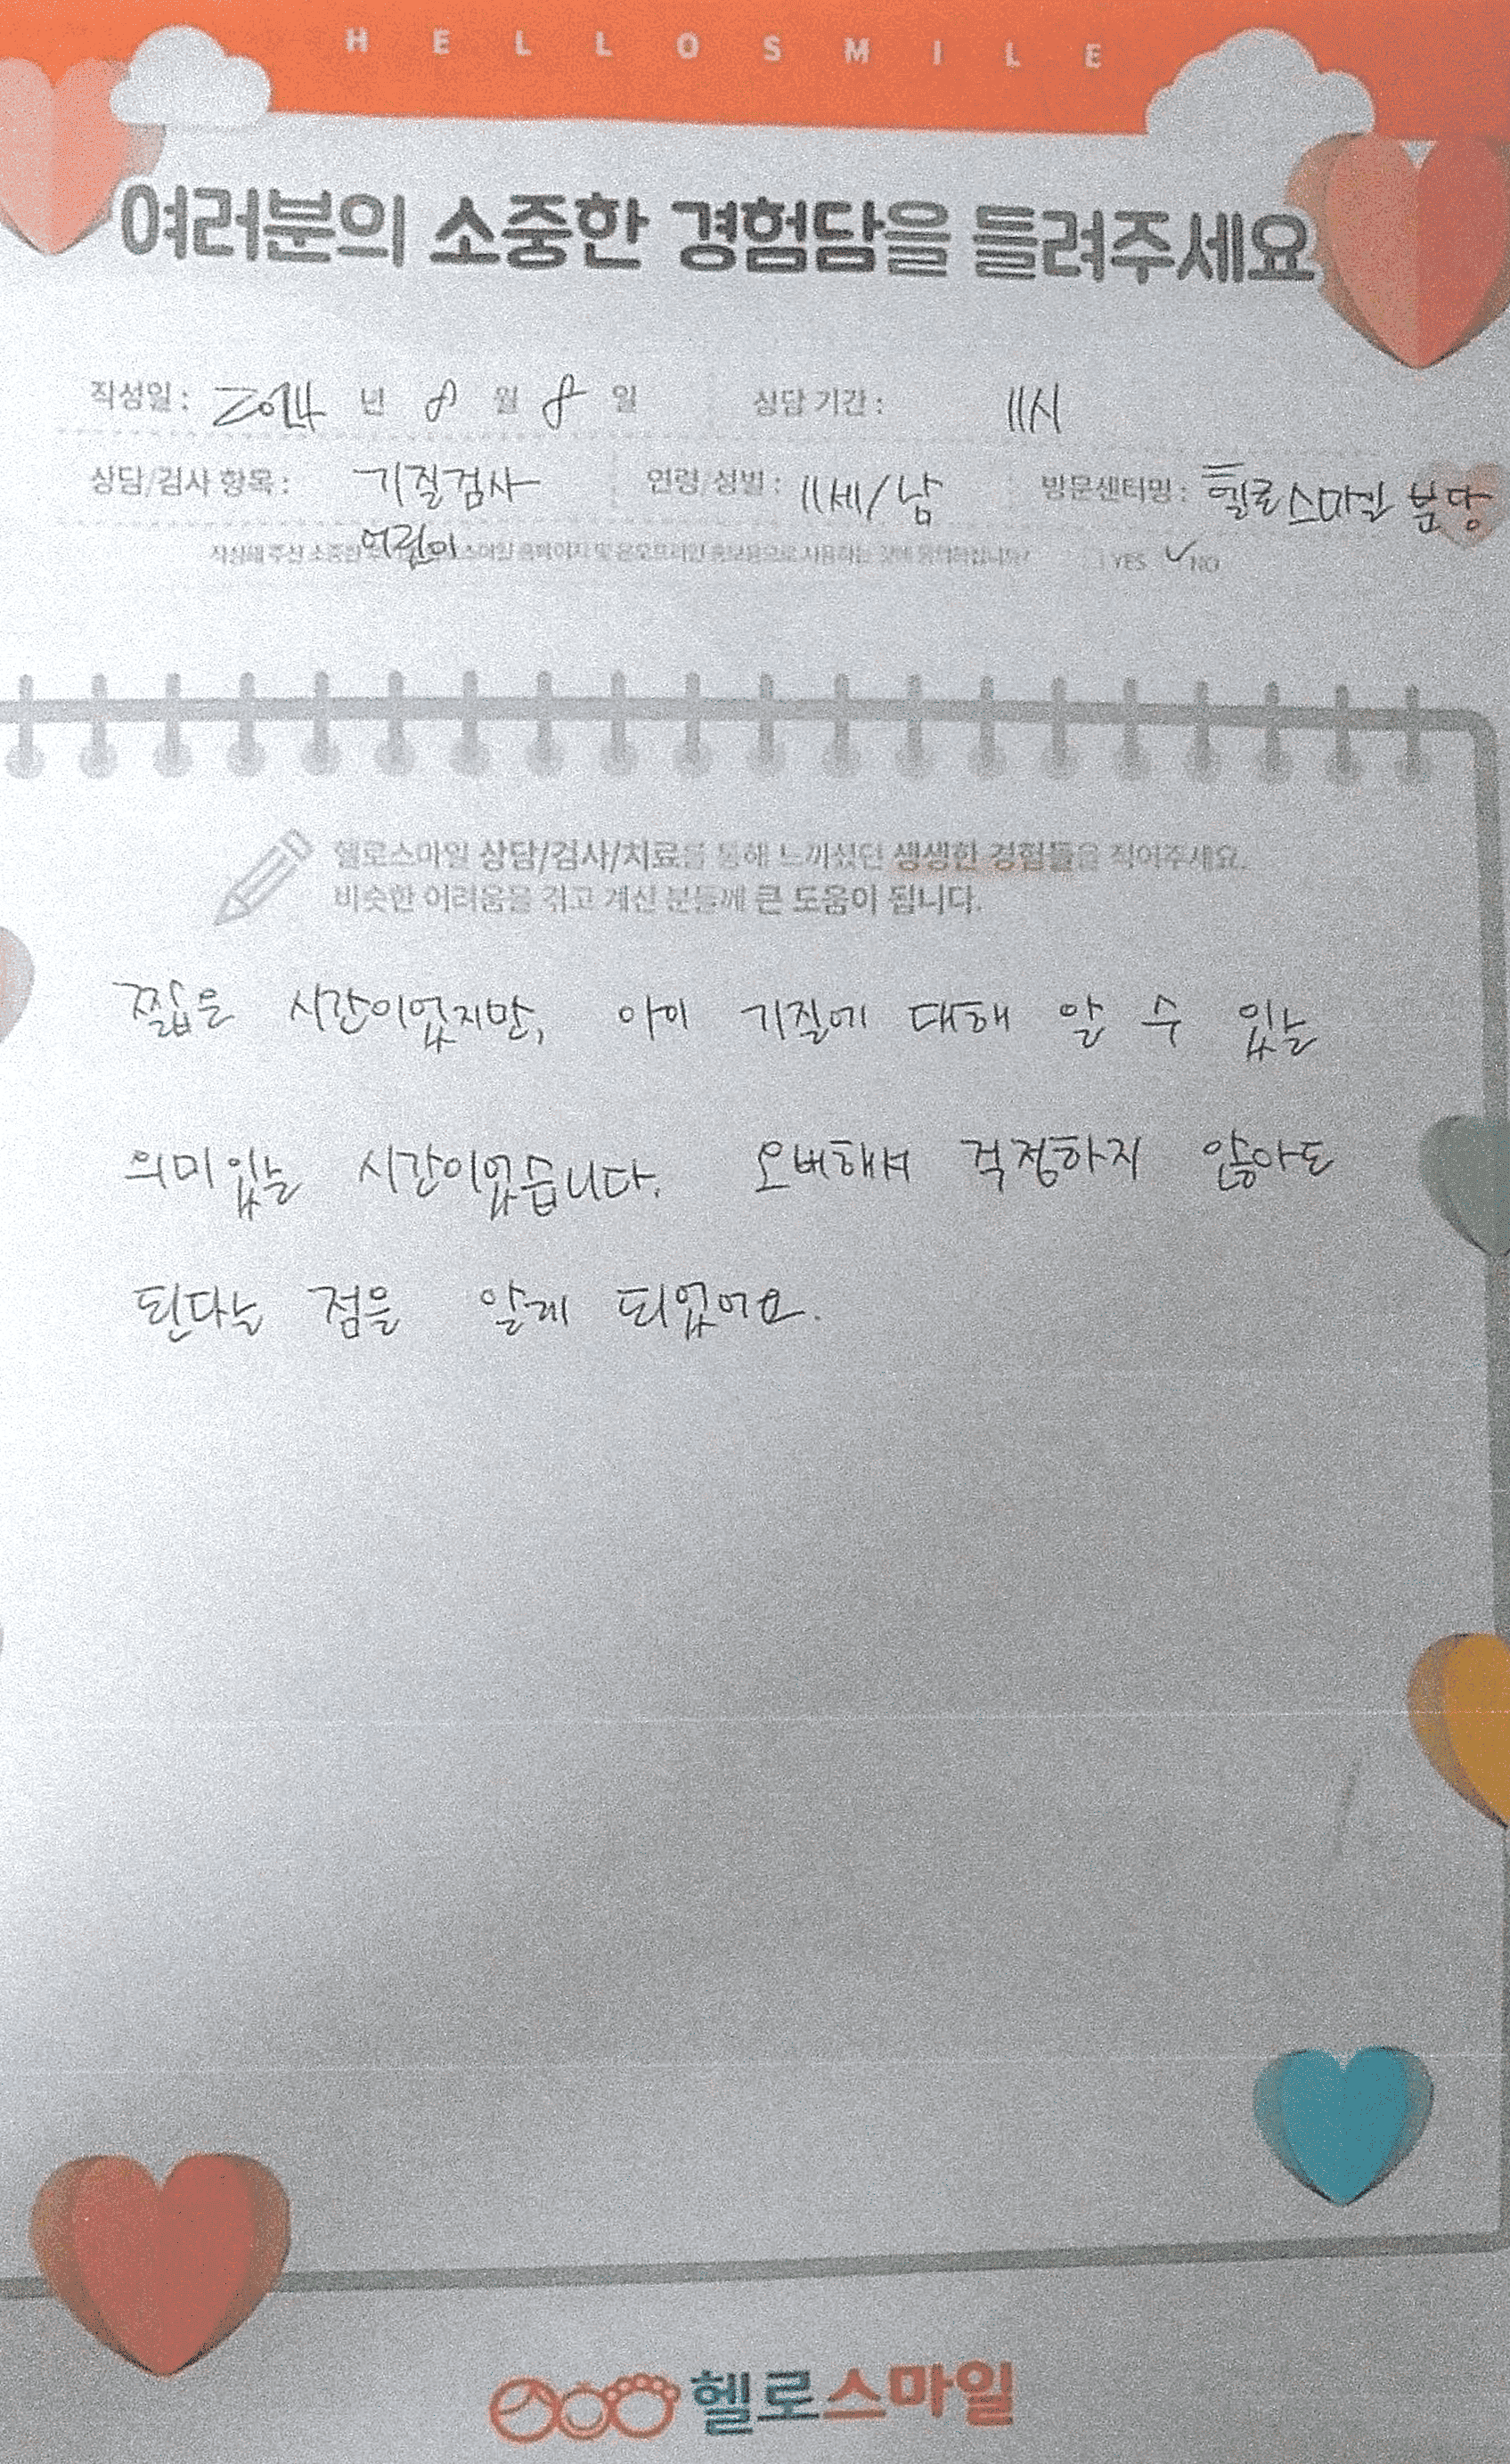 HELLOSMILE
여러분의 소중한 경험담을 들려주세요
작성일 : 2024 년 8 월 8 일 상담 기간 : 11시
상담/검사 항목 : 기질검사 연령/성별 : 11세/남 방문센터명 : 헬로스마일 분당
어린이
작성해 주신 소중한 스마일 홈페이지 및 온오프라인 홍보용으로 사용하는 것에 동의하십니까? YES ✓ NO
헬로스마일 상담/검사/치료를 통해 느끼셨던 생생한 경험들을 적어주세요.
비슷한 어려움을 겪고 계신 분들께 큰 도움이 됩니다.
짧은 시간이었지만, 아이 기질에 대해 알 수 있는
의미있는 시간이었습니다. 오버해서 걱정하지 않아도
된다는 점을 알게 되었어요.
헬로스마일